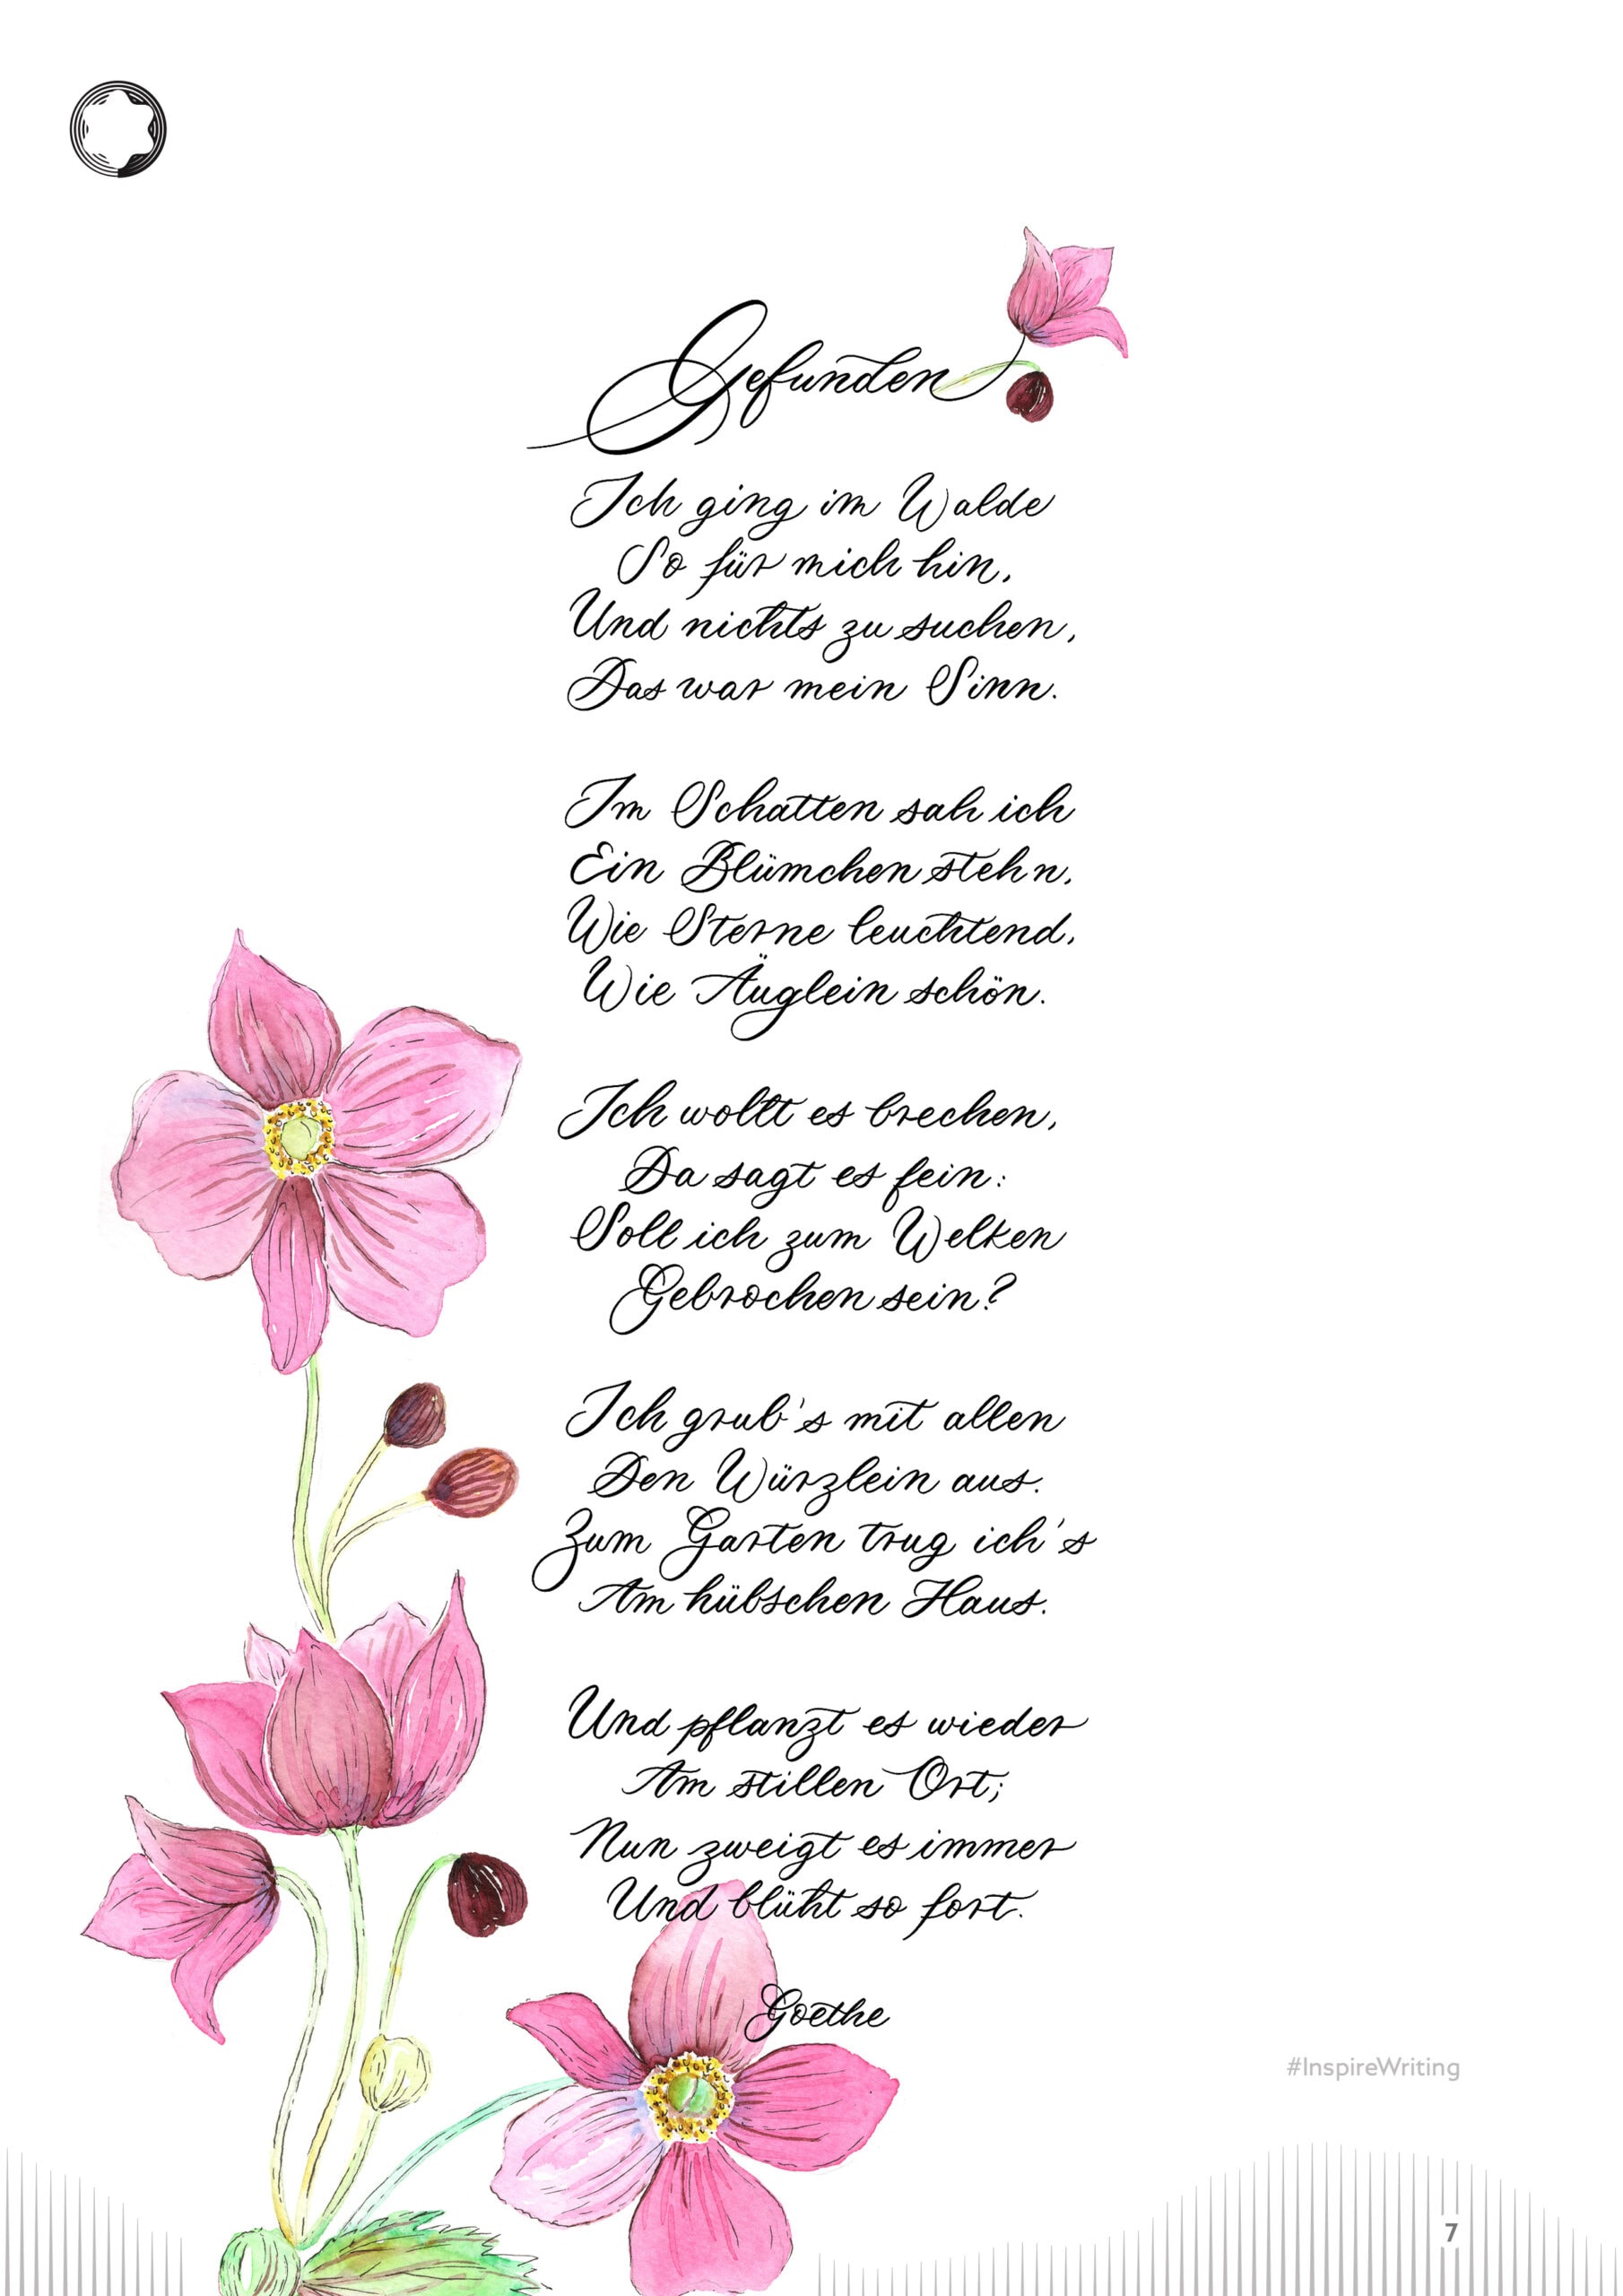 Gefunden
Ich ging im Walde
So für mich hin,
Und nichts zu suchen,
Das war mein Sinn.
Im Schatten sah ich
Ein Blümchen stehn,
Wie Sterne leuchtend,
Wie Äuglein schön.
Ich wollt es brechen,
Da sagt es fein:
Soll ich zum Welken
Gebrochen sein?
Ich grub's mit allen
Den Würzlein aus.
Zum Garten trug ich's
Am hübschen Haus.
Und pflanzt es wieder
Am stillen Ort;
Nun zweigt es immer
Und blüht so fort.
Goethe
#InspireWriting
7